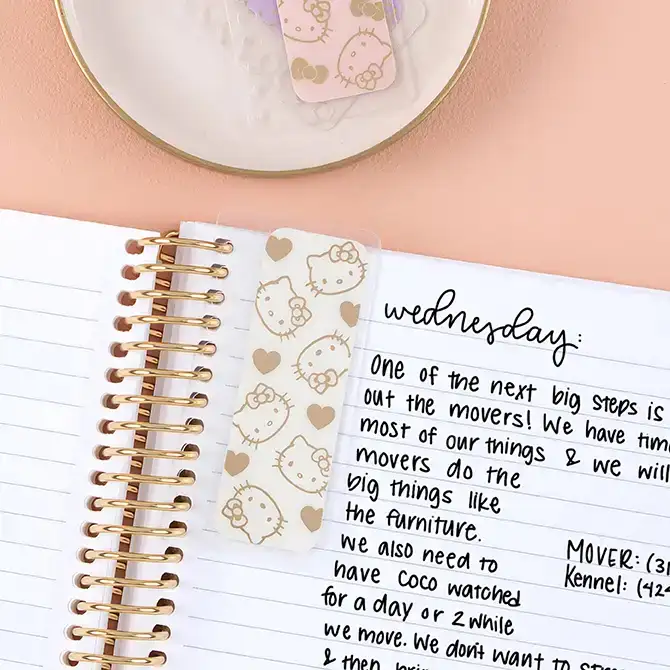 wednesday:
One of the next big steps is
out the movers! We have tim
most of our things & we will
movers do the
big things like
the furniture.
We also need to
have Coco watched
for a day or 2 while
we move. We don't want to
& then
MOVER: (31
Kennel: (424